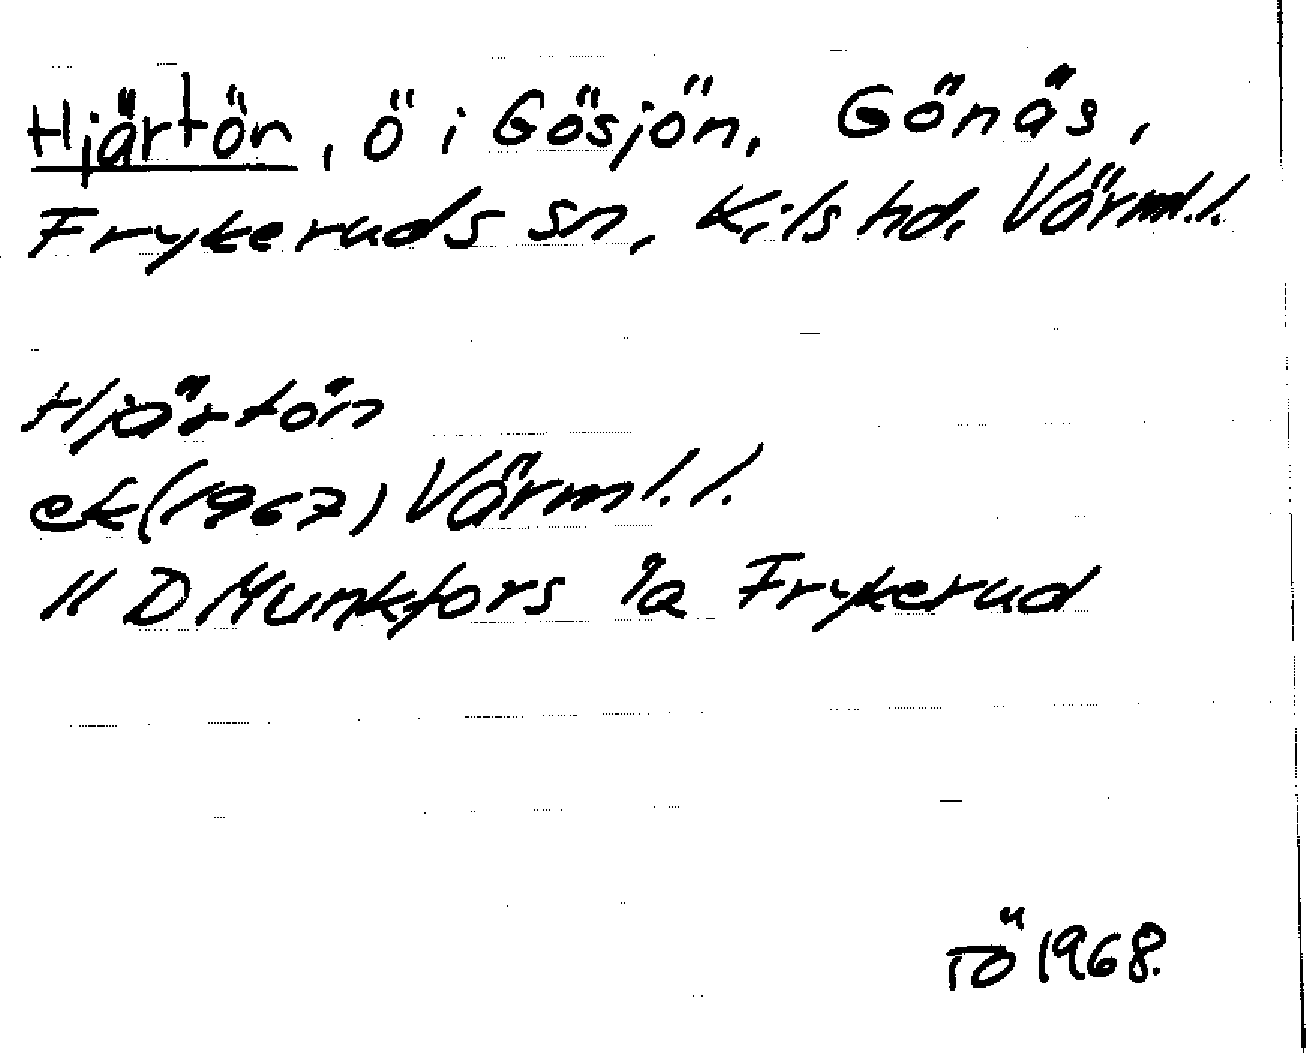 Hjärtön, ö i Gösjön, Gönäs,
Frykeruds sn, Kils hd. Värml.l.
Hjärtön
ek (1967) Värml.l.
11 D Munkfors 1a Frykerud
TÖ 1968.